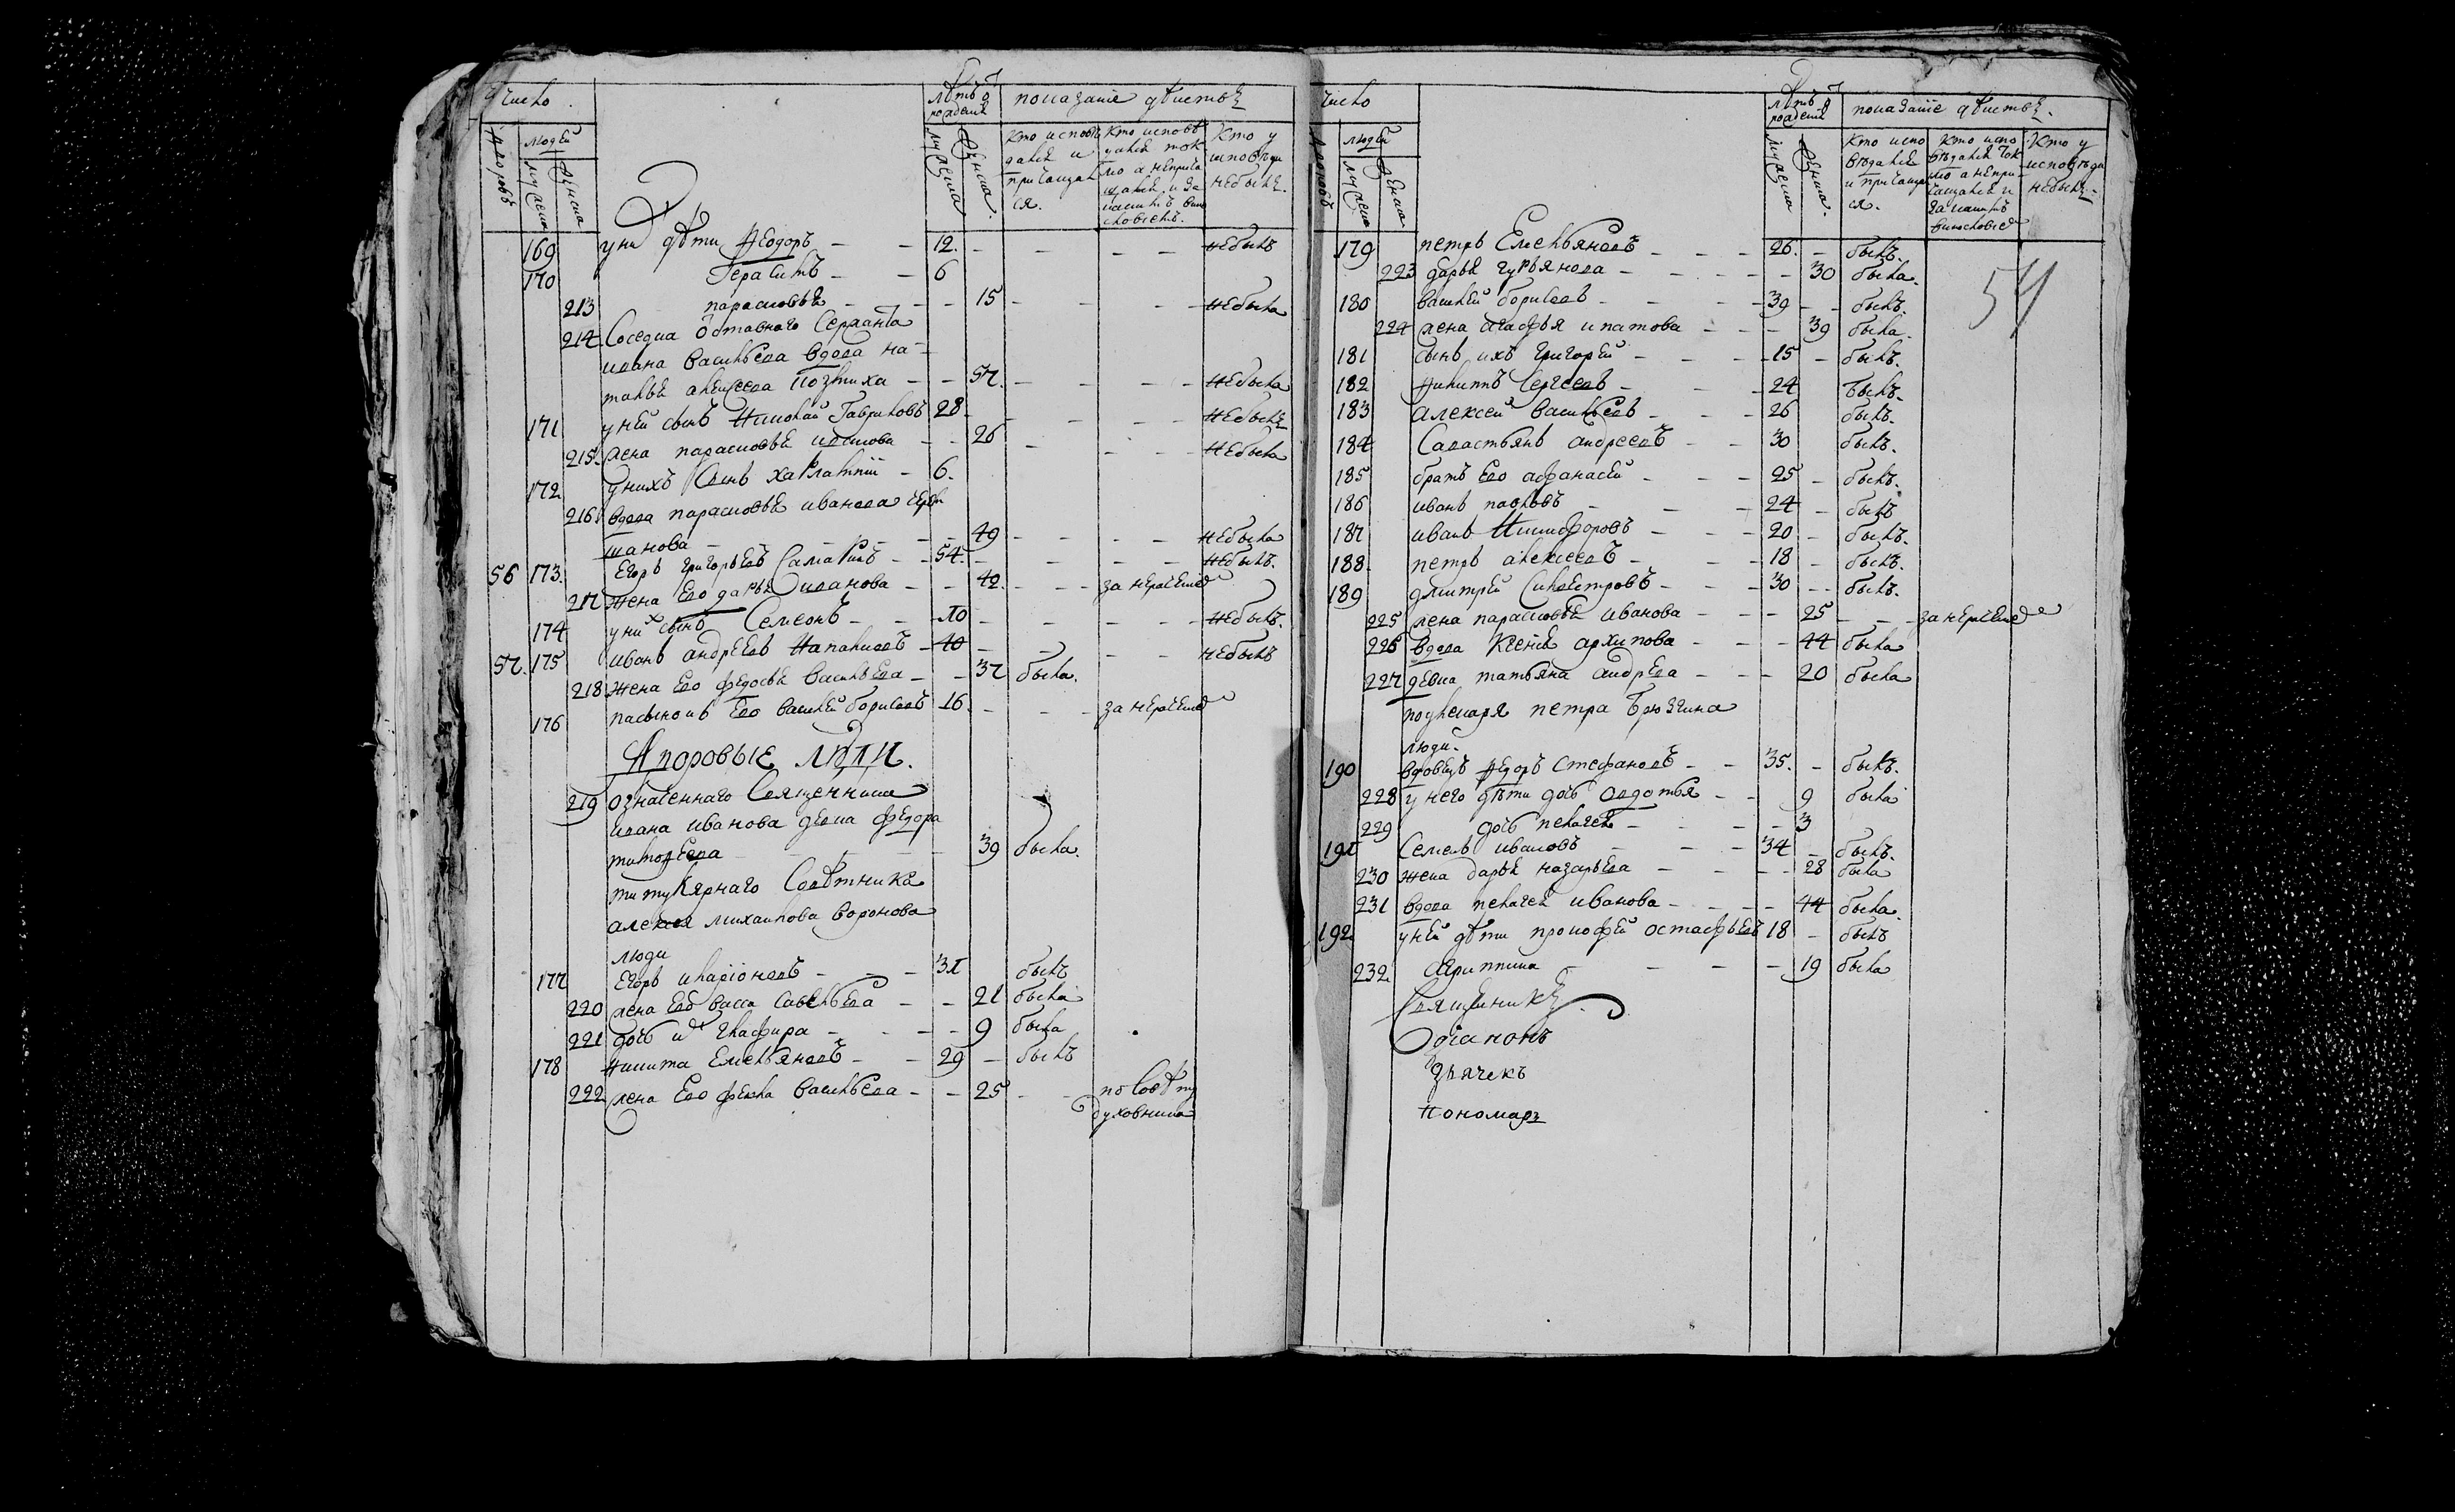 Число
лѣтъ ѿ рожденія
показаніе дѣйствъ
дворовъ
людей
мужеска
женска
мужеска
женска
Кто исповѣдался и причащался.
Кто исповѣдался токмо а непричащался и за какимъ винословіемъ.
Кто у исповѣди небылъ.
169 у ни дѣти Ѳеодоръ 12. небылъ
170 Герасимъ 6
213 парасковья 15 небыла
214 Соседка Отставного Сержанта
ивана васильева вдова на
талья алексеева 57. небыла
171 у ней сынъ Николай Гавриловъ 28 небылъ
215. жена парасковья 26 небыла
172 у нихъ Сынъ харлампій 6.
216 вдова парасковья иванова
49 небыла
56 173. Егоръ григорьевъ 54. небылъ.
217 жена Его дарья иванова 42. за нерачение
174 у них сынъ Семеонъ 10 небылъ.
57. 175 иванъ андреевъ 40 небылъ
218 жена Его федосья васильева 37 была.
176 пасынокъ Его василей борисовъ 16. за нерачение
Дворовые люди.
219 означеннаго Священника
ивана иванова девка федора
тимофеева 39 была.
титулярнаго Советника
алексея михаилова воронова
люди
177 Егоръ иларионовъ 31 былъ
220 жена Его васса савельева 21 была
221 дочь и глафира 9 была
178 никита Емельяновъ 29 былъ
222 жена Его фекла васильева 25 по совѣту
духовника
Число
лѣтъ ѿ рожденія
показаніе дѣйствъ.
дворовъ
людей
мужеска
женска
мужеска
женска.
Кто исповѣдался и причащался.
Кто исповѣдался токмо а непричащался и за какимъ винословие
Кто у исповѣди небылъ.
54
179 петръ Емельяновъ 26. былъ.
223 дарья гурьянова 30 была.
180 василей борисовъ 39 былъ.
224 жена агафья ипатова 39 была.
181 сынъ ихъ григорей 15 былъ.
182 Филиппъ Сергеевъ 24 былъ.
183 алексей васильевъ 26 былъ.
184 Савастьянъ андреевъ 30 былъ.
185 братъ Его афанасей 25 былъ.
186 иванъ павловъ 24 былъ
187 иванъ Никифоровъ 20 былъ.
188 петръ алексеевъ 18 былъ.
189 дмитрей Силвестровъ 30 былъ.
225 жена парасковья иванова 25 за нерачение
226 вдова Ксенья архипова 44 была
227 девка татьяна андреева 20 была
подлекаря петра Брюзгина
люди.
190 вдовецъ Федоръ Стефановъ 35. былъ.
228 у него дѣти дочь авдотья 9 была
229 дочь пелагея 3
191 Семенъ ивановъ 34 былъ.
230 жена дарья назарьева 28 была
231 вдова пелагея иванова 44 была.
192 у ней дѣти прокофей остафьевъ 18 былъ
232 Агрипина 19 была
Священникъ
Діаконъ
Дьячекъ
Пономарь